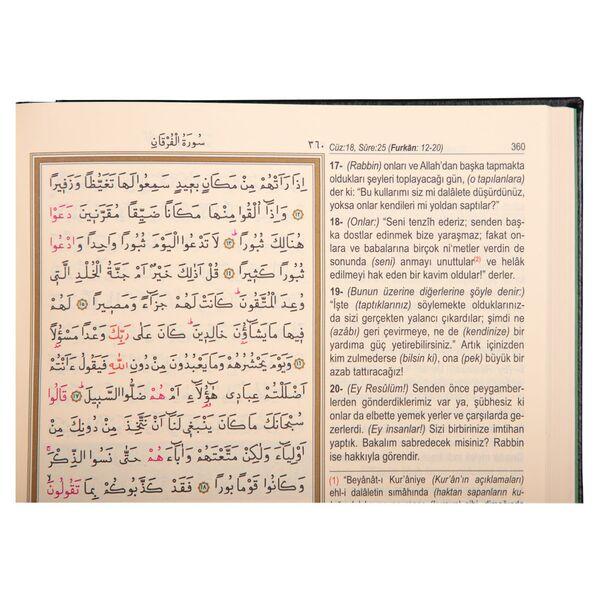 سُورَةُ الْفُرْقَانِ
٣٦٠
اِذَا رَاَتْهُمْ مِنْ مَكَانٍ بَعِيدٍ سَمِعُوا لَهَا تَغَيُّظًا وَزَفِيرًا
﴿١٢﴾ وَاِذَٓا اُلْقُوا مِنْهَا مَكَانًا ضَيِّقًا مُقَرَّنِينَ دَعَوْا
هُنَالِكَ ثُبُورًا ﴿١٣﴾ لَا تَدْعُوا الْيَوْمَ ثُبُورًا وَاحِدًا وَادْعُوا
ثُبُورًا كَثِيرًا ﴿١٤﴾ قُلْ اَذٰلِكَ خَيْرٌ اَمْ جَنَّةُ الْخُلْدِ الَّتِي
وُعِدَ الْمُتَّقُونَ كَانَتْ لَهُمْ جَزَٓاءً وَمَصِيرًا ﴿١٥﴾ لَهُمْ
فِيهَا مَا يَشَٓاؤُ۫نَ خَالِدِينَ كَانَ عَلٰى رَبِّكَ وَعْدًا مَسْؤُ۫لًا
﴿١٦﴾ وَيَوْمَ يَحْشُرُهُمْ وَمَا يَعْبُدُونَ مِنْ دُونِ اللّٰهِ فَيَقُولُ ءَاَنْتُمْ
اَضْلَلْتُمْ عِبَادِي هٰٓؤُ۬لَٓاءِ اَمْ هُمْ ضَلُّوا السَّبِيلَ ﴿١٧﴾ قَالُوا
سُبْحَانَكَ مَا كَانَ يَنْبَغِي لَنَٓا اَنْ نَتَّخِذَ مِنْ دُونِكَ مِنْ
اَوْلِيَٓاءَ وَلٰكِنْ مَتَّعْتَهُمْ وَاٰبَٓاءَهُمْ حَتّٰى نَسُوا الذِّكْرَ
وَكَانُوا قَوْمًا بُورًا ﴿١٨﴾ فَقَدْ كَذَّبُوكُمْ بِمَا تَقُولُونَ
Cüz:18, Sûre:25 (Furkân: 12-20)
360
17- (Rabbin) onları ve Allah'dan başka tapmakta
oldukları şeyleri toplayacağı gün, (o tapılanlara)
der ki: "Bu kullarımı siz mi dalâlete düşürdünüz,
yoksa onlar kendileri mi yoldan saptılar?"
18- (Onlar:) "Seni tenzîh ederiz; senden baş-
ka dostlar edinmek bize yaraşmaz; fakat on-
lara ve babalarına birçok ni'metler verdin de
sonunda (seni) anmayı unuttular(2) ve helâk
edilmeyi hak eden bir kavim oldular!" derler.
19- (Bunun üzerine diğerlerine şöyle denir:)
"İşte (taptıklarınız) söylemekte olduklarınız-
da sizi gerçekten yalancı çıkardılar; şimdi ne
(azâbı) geri çevirmeye, ne de (kendinize) bir
yardıma güç yetirebilirsiniz." Artık içinizden
kim zulmederse (bilsin ki), ona (pek) büyük bir
azab tattıracağız!
20- (Ey Resûlüm!) Senden önce peygamber-
lerden gönderdiklerimiz var ya, şübhesiz ki
onlar da elbette yemek yerler ve çarşılarda ge-
zerlerdi. (Ey insanlar!) Sizi birbirinize imtihan
yaptık. Bakalım sabredecek misiniz? Rabbin
ise hakkıyla görendir.
(1) "Beyânât-ı Kur'âniye (Kur'ân'ın açıklamaları)
ehl-i dalâletin sımâhında (haktan sapanların ku-